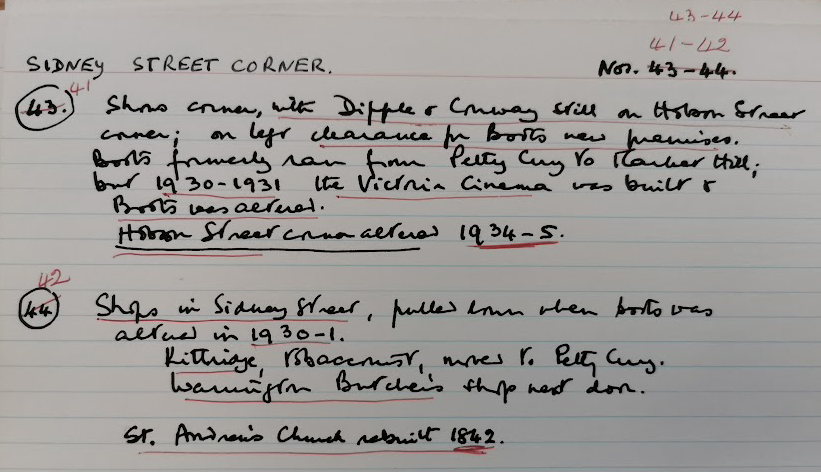 43-44
41-42
SIDNEY STREET CORNER. Nos. 43-44.
43. 41 Shows corner, with Dipple & Conway still on Hobson Street
corner; on left clearance for Boots new premises.
Boots formerly ran from Petty Cury to Market Hill;
but 1930-1931 the Victoria Cinema was built &
Boots was altered.
Hobson Street corner altered 1934-5.
42
44 Shops in Sidney Street, pulled down when boots was
altered in 1930-1.
Kittridge, tobacconist, moved to Petty Cury.
Warrington Butcher's shop next door.
St. Andrew's Church rebuilt 1842.